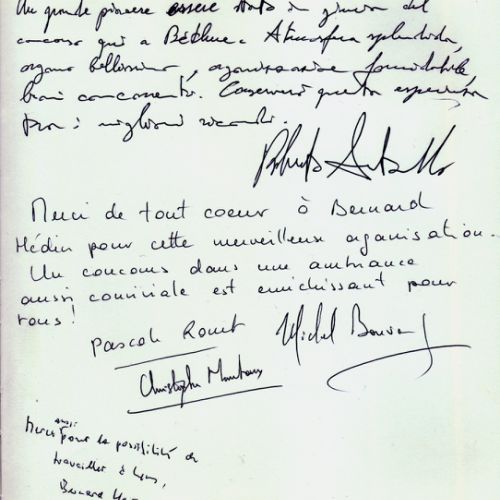 Un grande piacere essere stato in giuria del
concorso qui a Béthune. Atmosfera splendida,
organo bellissimo, organizzazione formidabile,
bravi concorrenti. Conserverò questa esperienza
tra i migliori ricordi.
Roberto Antonello
Merci de tout coeur à Bernard
Hédin pour cette merveilleuse organisation.
Un concours dans une ambiance
aussi conviviale est enrichissant pour
tous!
Pascale Rouet
Michel Bouvard
Christophe Mantoux
aussi
Merci pour la possibilité de
travailler à
Bernard